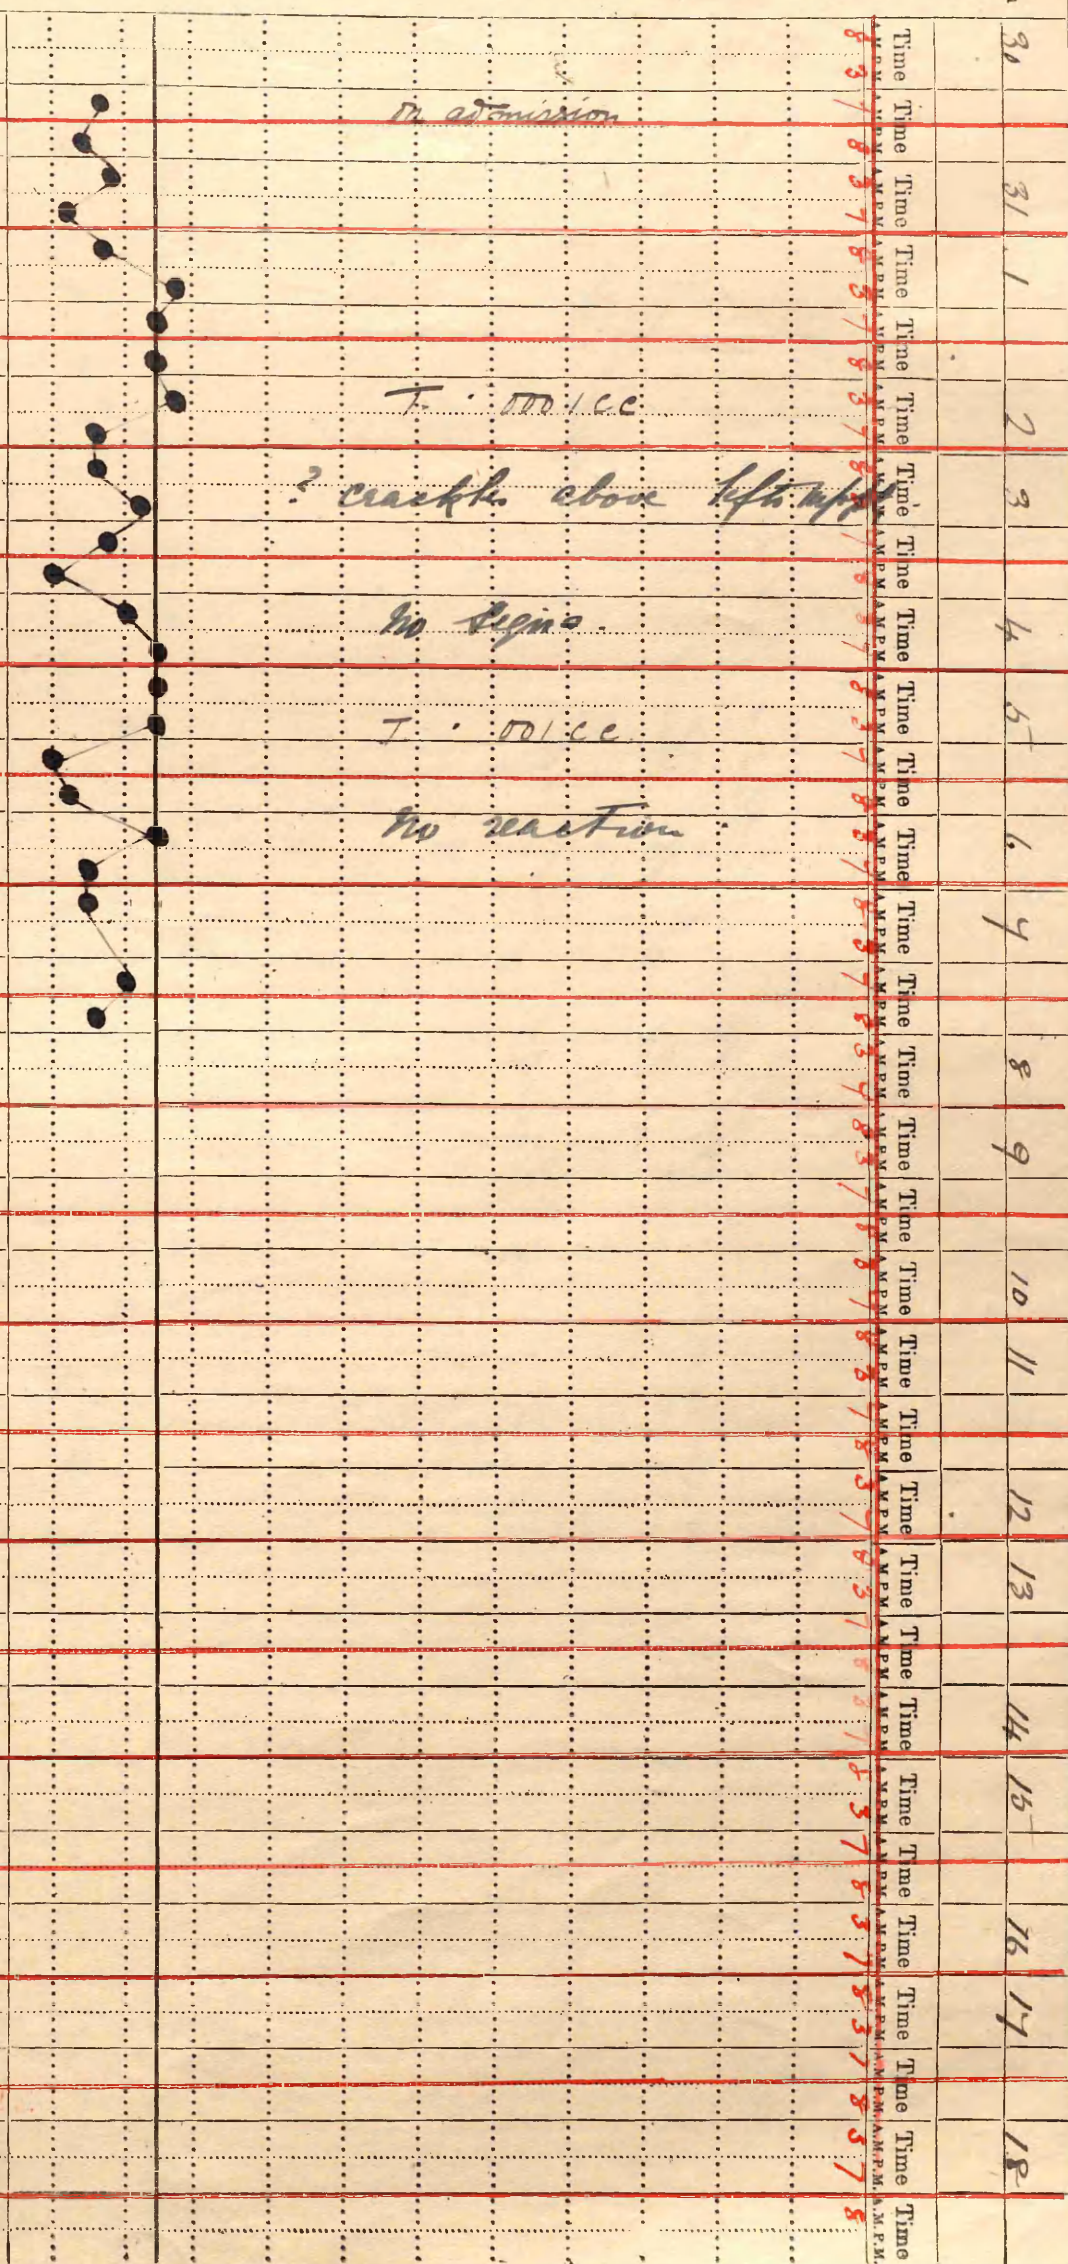 30 31 1 2 3 4 5 6 7 8 9 10 11 12 13 14 15 16 17 18
Time Time Time Time Time Time Time Time Time Time Time Time Time Time Time Time Time Time Time Time Time Time Time Time Time Time Time Time Time Time Time
A.M. P.M. A.M. P.M. A.M. P.M. A.M. P.M. A.M. P.M. A.M. P.M. A.M. P.M. A.M. P.M. A.M. P.M. A.M. P.M. A.M. P.M. A.M. P.M. A.M. P.M. A.M. P.M. A.M. P.M. A.M. P.M. A.M. P.M. A.M. P.M. A.M. P.M. A.M. P.M. A.M. P.M. A.M. P.M. A.M. P.M. A.M. P.M. A.M. P.M. A.M. P.M. A.M. P.M. A.M. P.M. A.M. P.M. A.M. P.M. A.M. P.M.
8 3 7 8 3 7 8 3 7 8 3 7 8 3 7 8 3 7 8 3 7 8 3 7 8 3 7 8 3 7 8 3 7 8 3 7 8 3 7 8 3 7 8 3 7 8 3 7 8 3 7 8 3 7 8 3 7 8 3 7 8
on admission
T. .0001 cc
? crackles above left
No signs.
T .001 cc
No reaction